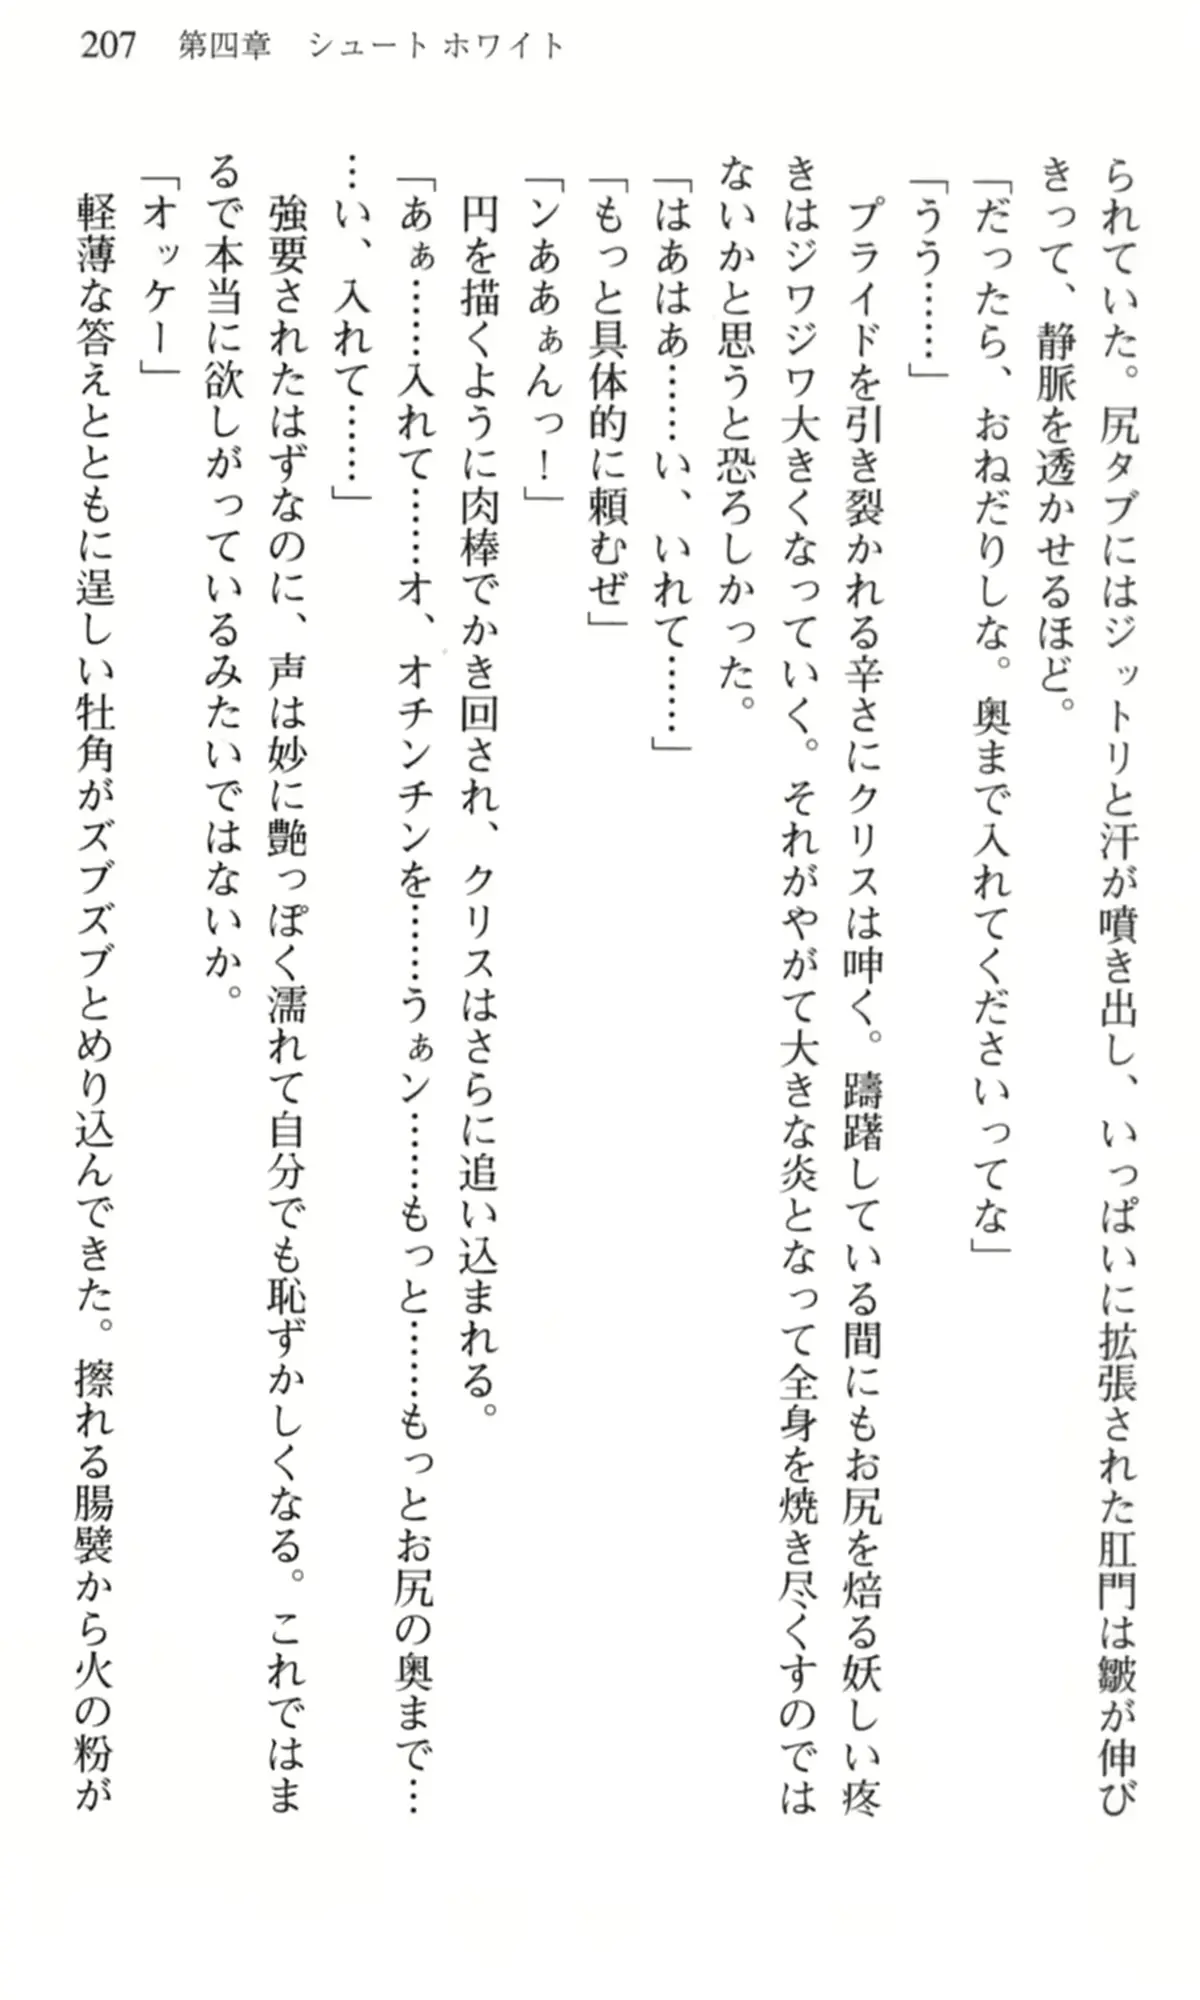 207 第四章 シュート ホワイト
られていた。尻タブにはジットリと汗が噴き出し、いっぱいに拡張された肛門は皺が伸び
きって、静脈を透かせるほど。
「だったら、おねだりしな。奥まで入れてくださいってな」
「うう……」
プライドを引き裂かれる辛さにクリスは呻く。躊躇している間にもお尻を焙る妖しい疼
きはジワジワ大きくなっていく。それがやがて大きな炎となって全身を焼き尽くすのでは
ないかと思うと恐ろしかった。
「はあはあ……い、いれて……」
「もっと具体的に頼むぜ」
「ンああぁんっ！」
円を描くように肉棒でかき回され、クリスはさらに追い込まれる。
「あぁ……入れて……オ、オチンチンを……うぁン……もっと……もっとお尻の奥まで…
…い、入れて……」
強要されたはずなのに、声は妙に艶っぽく濡れて自分でも恥ずかしくなる。これではま
るで本当に欲しがっているみたいではないか。
「オッケー」
軽薄な答えとともに逞しい牡角がズブズブとめり込んできた。擦れる腸襞から火の粉が